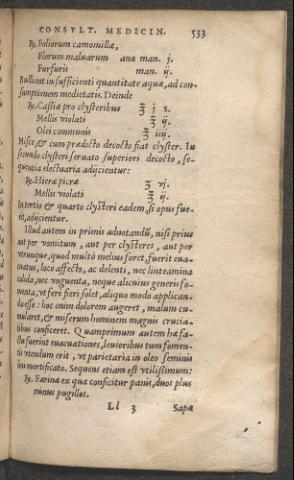 CONSVLT. MEDICIN. 533
℞. Foliorum camomillæ,
Florum maluarum ana man. j.
Furfuris man. ij.
Bulliant in sufficienti quantitate aquæ, ad con-
sumptionem medietatis. Deinde
℞. Cassiæ pro clysteribus ℥ j s.
Mellis violati ℥ ij.
Olei communis ℥ iiij.
Misce, & cum prædicto decocto fiat clyster. In
secundo clysteri seruato superiori decocto, se-
quentia electuaria adijcientur:
℞. Hieræ picræ ℥ vj.
Mellis violati ℥ ij.
In tertio & quarto clysteri eadem, si opus fue-
rit, adijcientur.
Illud autem in primis adnotandũ, nisi prius
aut per vomitum, aut per clysteres, aut per
vtrunque, quod multò melius foret, fuerit eua-
cuatus, loco affecto, ac dolenti, nec linteamina
calida, nec vnguenta, neque alicuius generis fo-
menta, vt fere fieri solet, aliquo modo applican-
da esse: hoc enim dolorem augeret, malum cu-
mularet, & miserum hominem magnis crucia-
tibus conficeret. Quamprimum autem hæ fa-
ctæ fuerint euacuationes, leuioribus tum fomen-
tis vtendum erit, vt parietaria in oleo seminis
lini mortificato. Sequens etiam est vtilissimum:
℞. Farinæ ex qua conficitur panis, duos plus
minus pugillos.
Ll 3 Sapæ